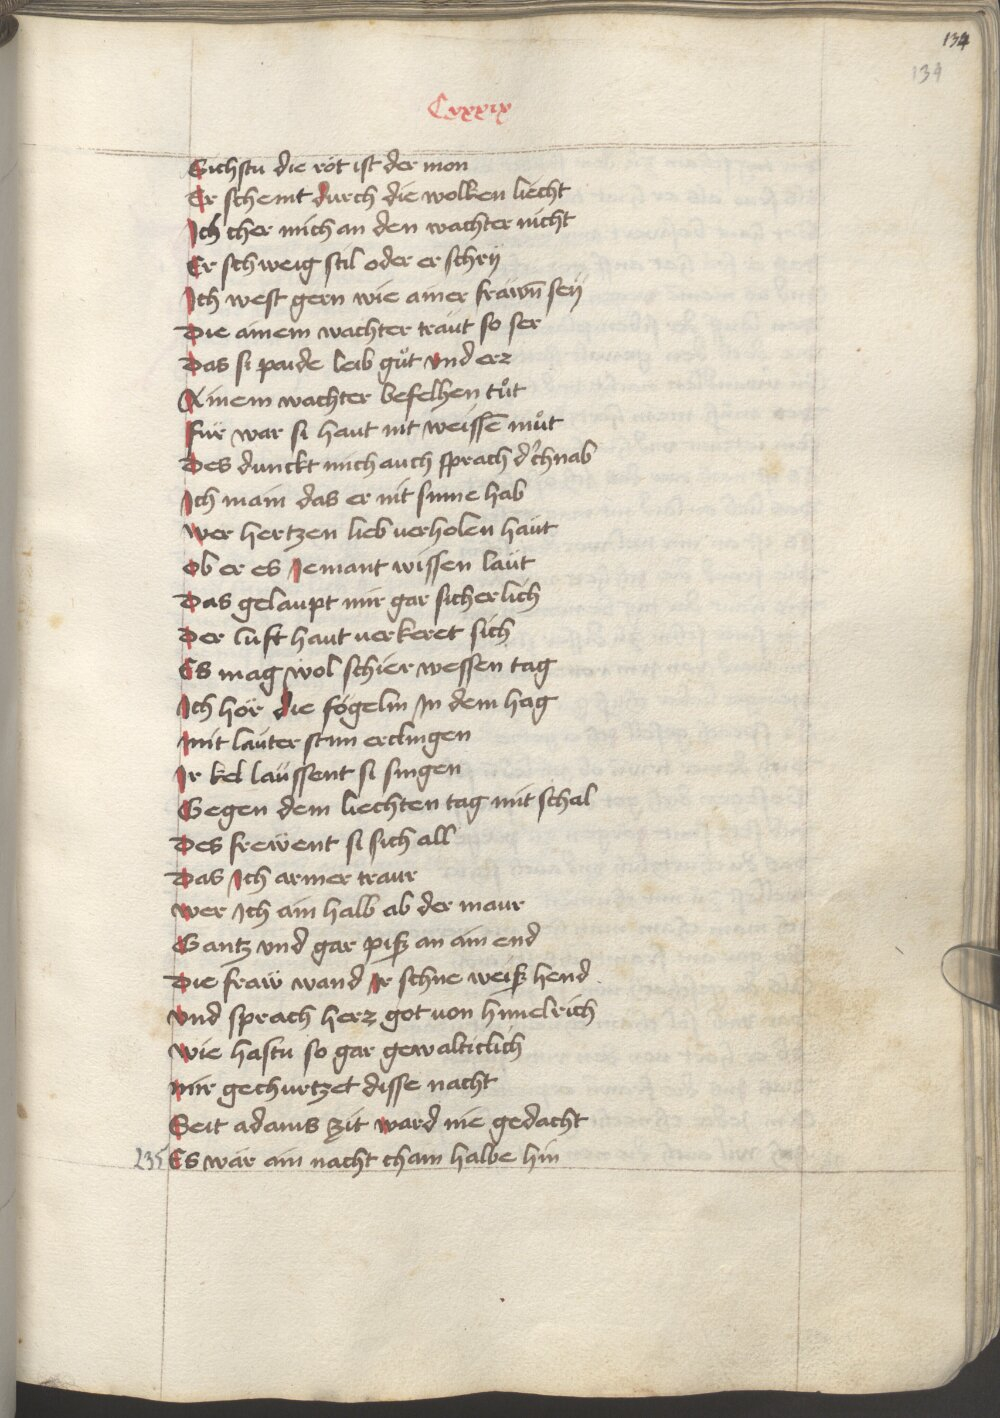 134
134
Cxxxix
Sichstu die röt ist der mon
Er scheint durch die wolken liecht
Ich cher mich an den wachter nicht
Er schweig stil oder er schrÿ
Ich west gern wie ainer fräwn̄ seÿ
Die ainem wachter traüt so ser
Das si paide leib gůt vnd erz
Ainem wachter befelhen tůt
Für war si haut nit weissen̄ můt
Des dunckt mich auch sprach d' chnab
Ich main das er nit sinne hab
Wer hertzen lieb verholen haüt
Ob er es Jemant wissen laüt
Das gelaupt mir gar sicherlich
Der luft haut verkeret sich
Es mag wol schier wessen tag
Ich hör die fögelin In dem hag
Mit laüter stim erclingen
Ir kel laüssent si singen
Gegen dem liechten tag mit schal
Des frewent si sich all
Das Ich armer traur
Wer Ich ain halb ab der maur
Gantz vnd gar piß an ain end
Die fraẅ wand Ir schne weiß hend
Vnd sprach herz got von himelrich
Wie hastu so gar gewalticlich
Mir gechurtzet disse nacht
Seit adams zit ward nie gedacht
235 Es wär ain nacht cham halbe hin